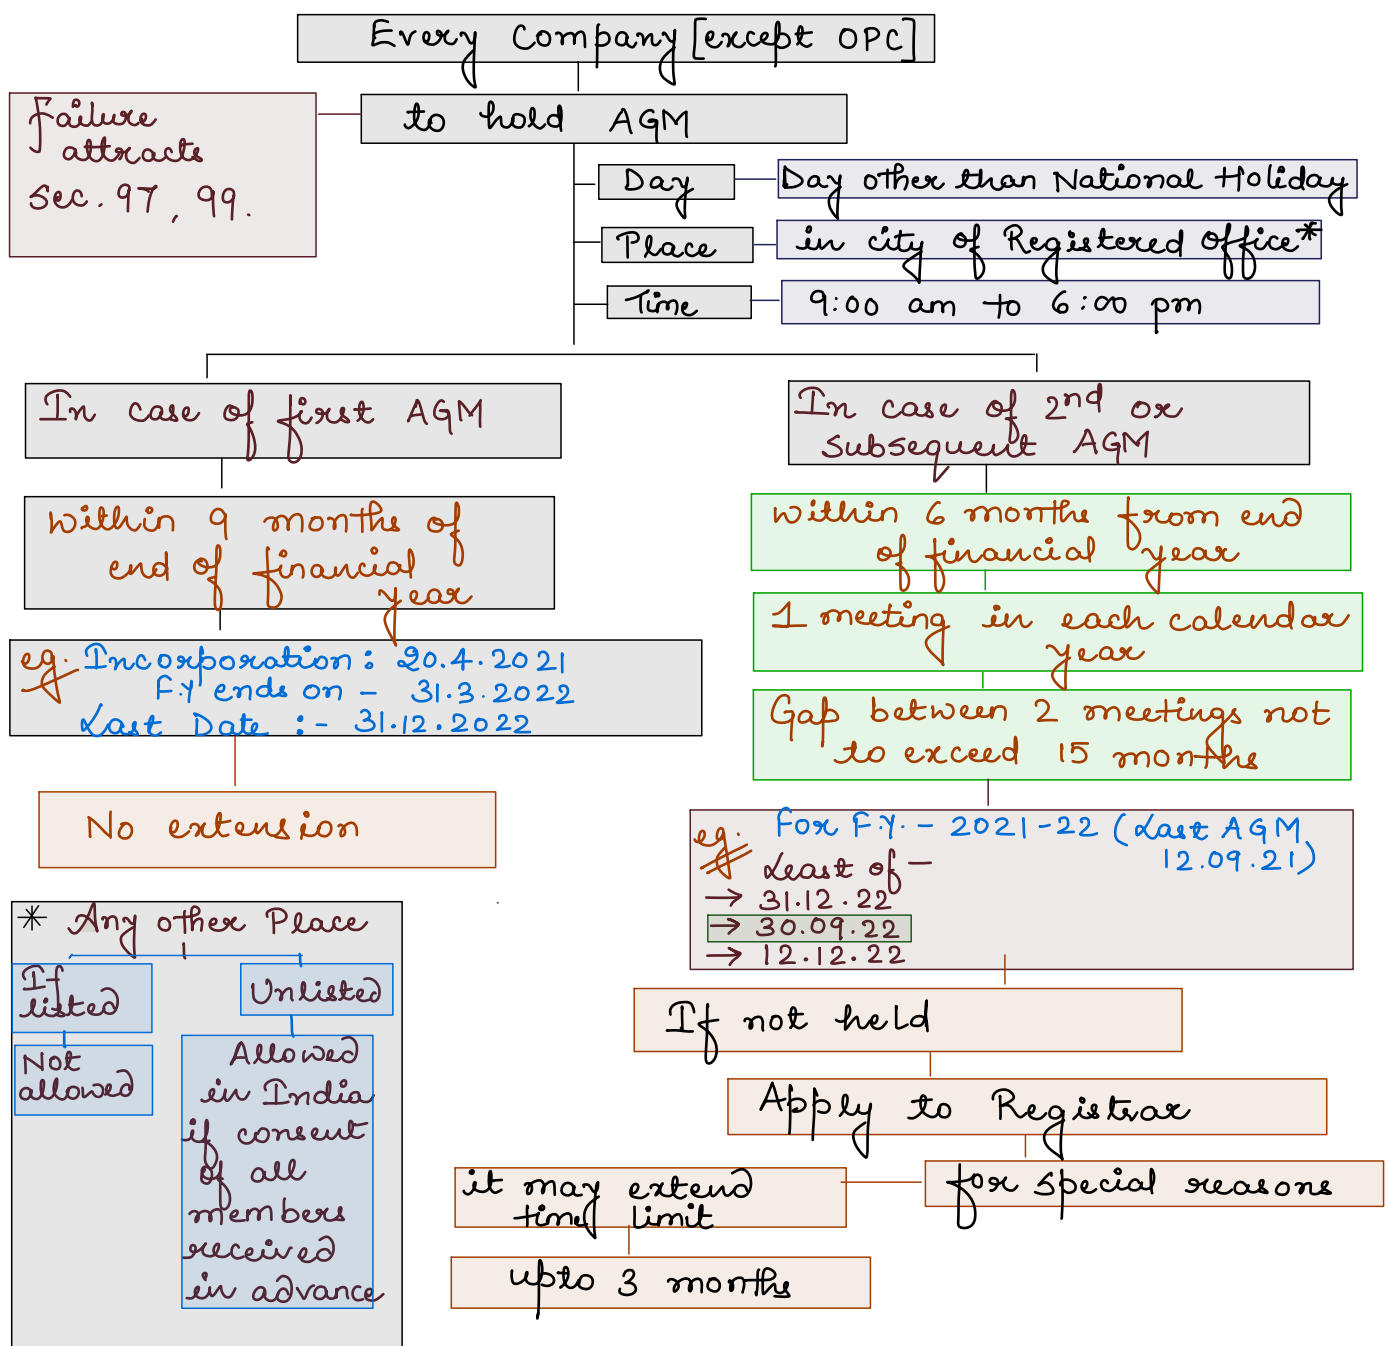 Every Company [except OPC]
to hold AGM
Failure
attracts
Sec. 97, 99.
Day
Day other than National Holiday
Place
in city of Registered Office*
Time
9:00 am to 6:00 pm
In case of first AGM
within 9 months of
end of financial
year
eg. Incorporation : 20.4.2021
F.Y ends on - 31.3.2022
Last Date :- 31.12.2022
No extension
In case of 2nd or
subsequent AGM
within 6 months from end
of financial year
1 meeting in each calendar
year
Gap between 2 meetings not
to exceed 15 months
eg. For F.Y. - 2021-22 (Last AGM
12.09.21)
Least of -
→ 31.12.22
→ 30.09.22
→ 12.12.22
If not held
Apply to Registrar
for special reasons
it may extend
time limit
upto 3 months
* Any other Place
If
listed
Not
allowed
Unlisted
Allowed
in India
if consent
of all
members
received
in advance